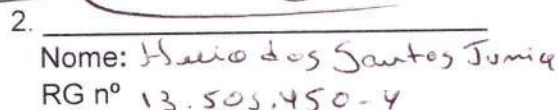 2.
Nome: dos Santos Junior
RG nº 13.505.450-4